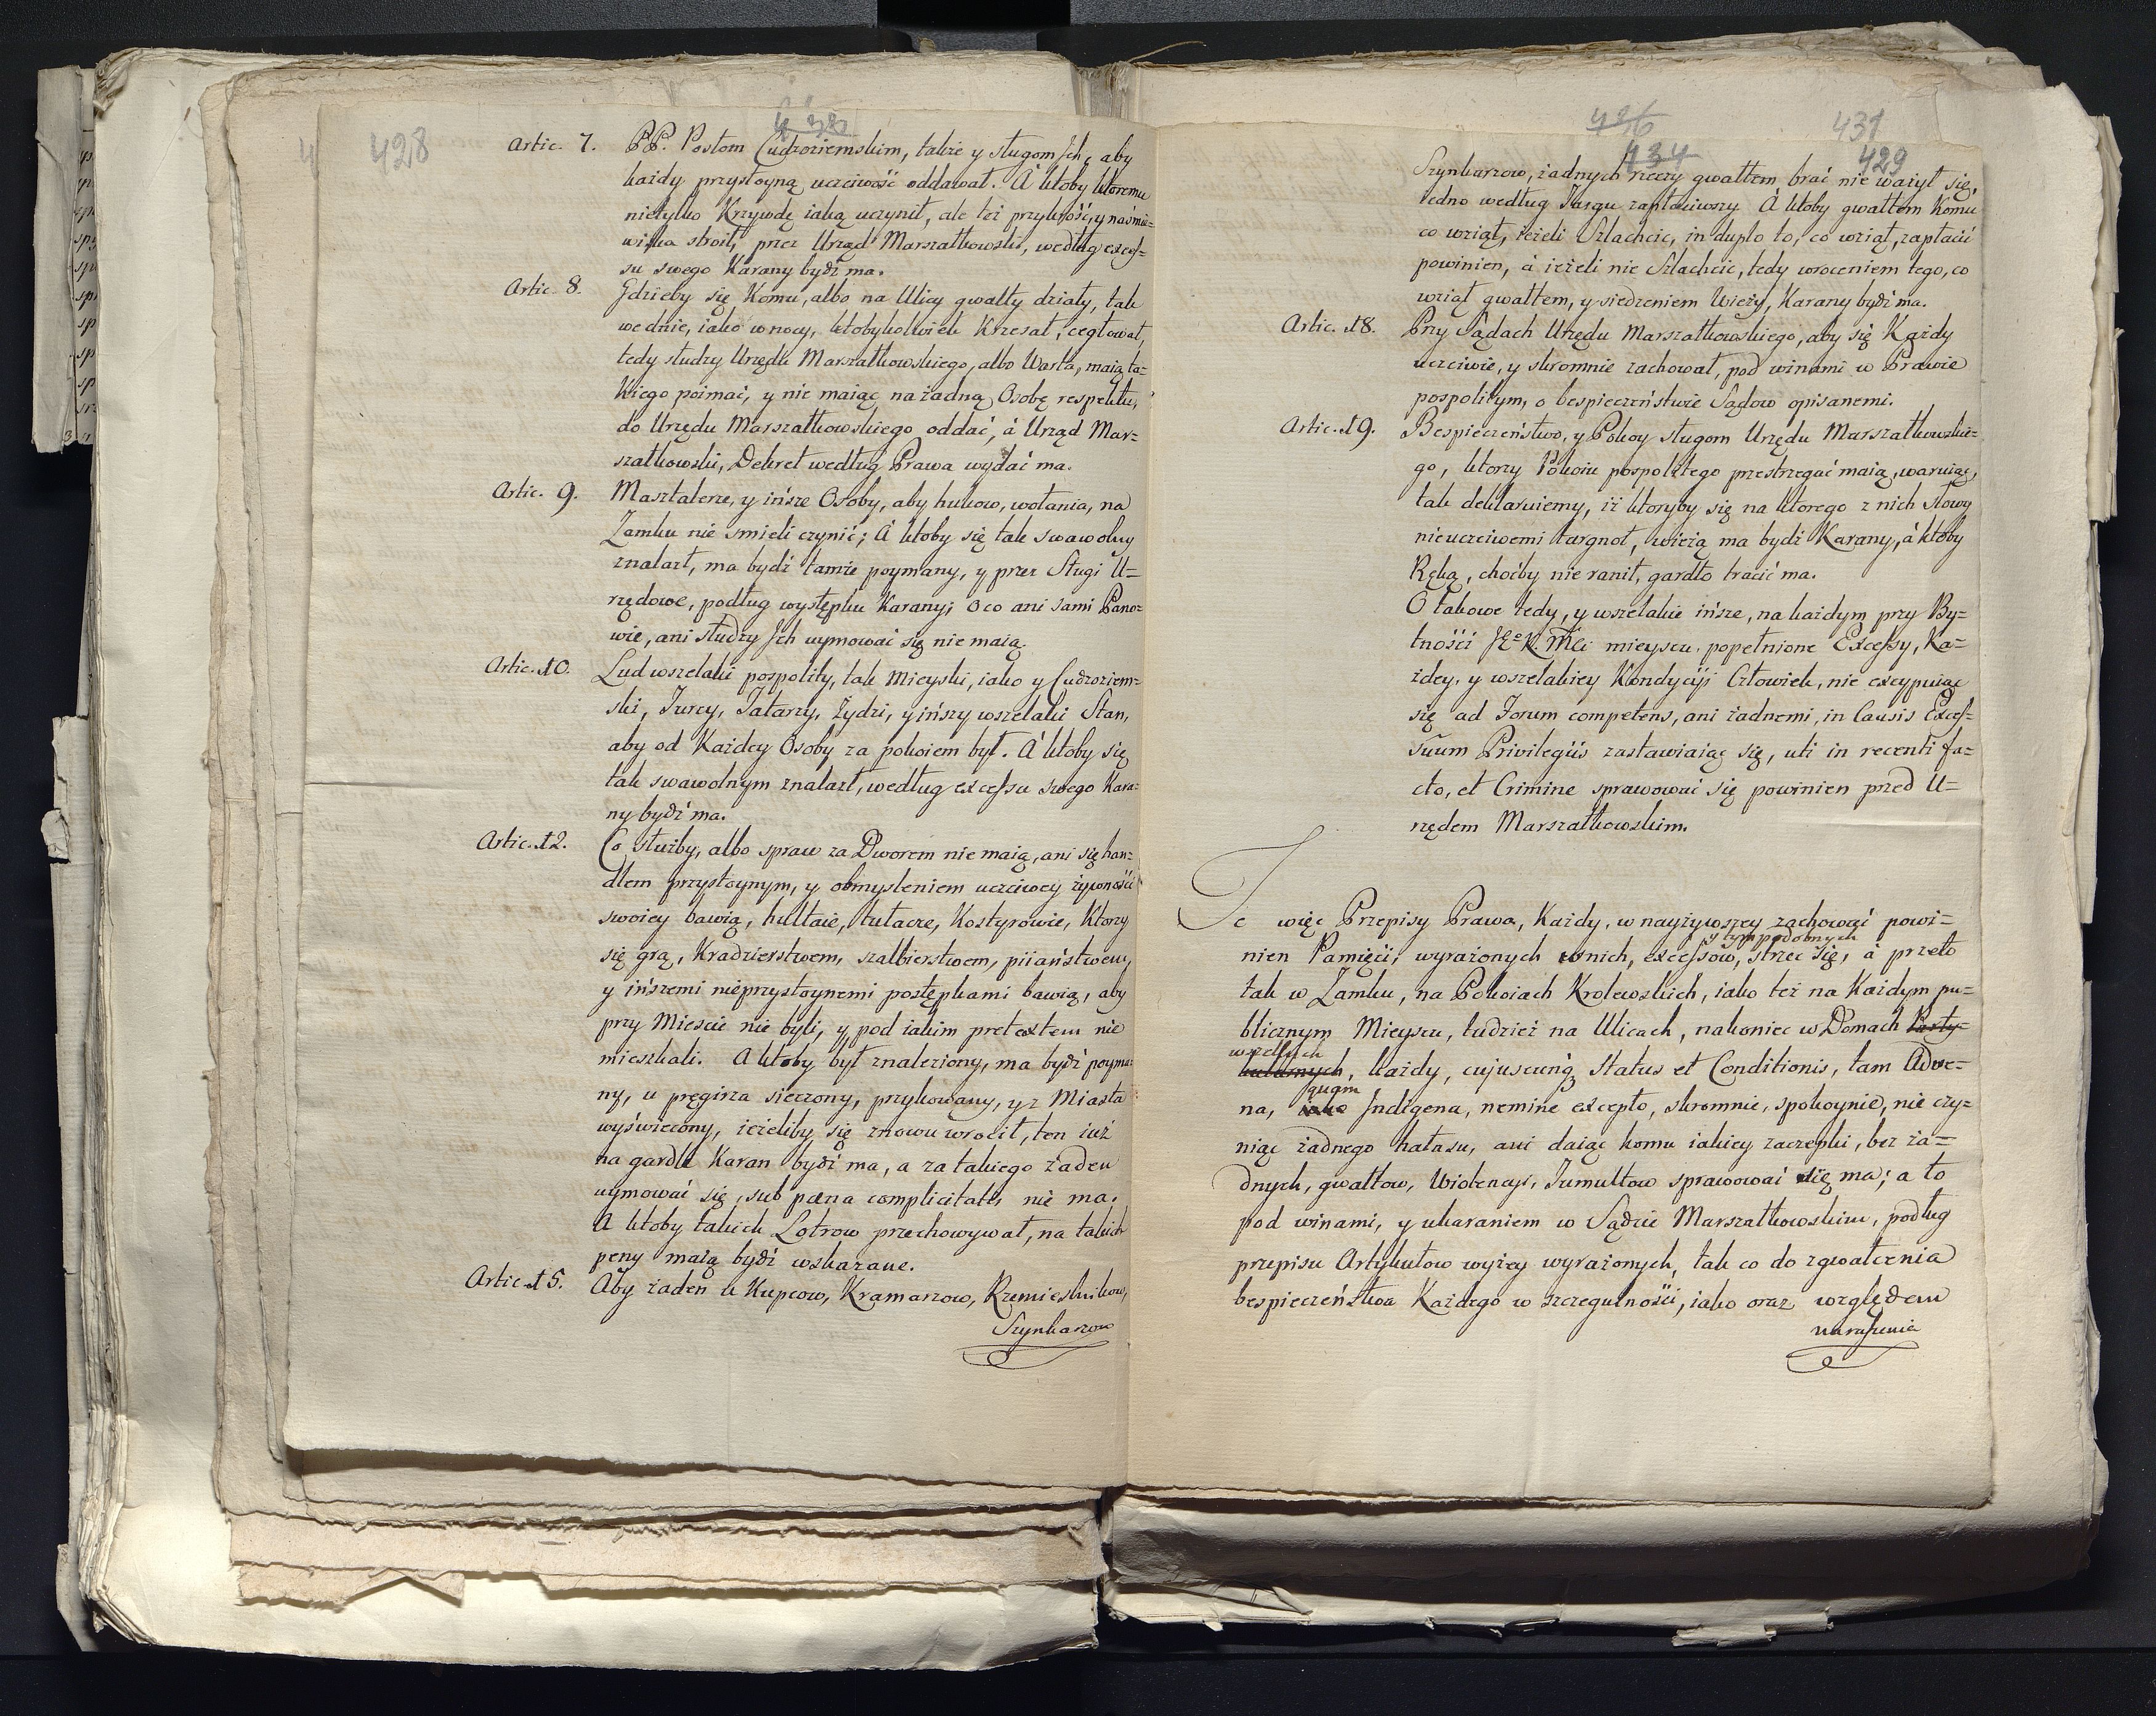 428
Artic. 7. PP. Posłom Cudzoziemskim, także y sługom Ich, aby
każdy przystoyną uczciwość oddawał. A ktoby ktoremu
nietylko Krzywdę iaką uczynił, ale też przykrość, y naśmie=
wiska stroił, przez Urząd Marszałkowski, według exces=
su swego Karany bydź ma.
Artic. 8. Gdzieby się Komu, albo na Ulicy gwałty działy, tak
we dnie, iako w nocy, ktobykolwiek Krzesał, cegłował,
tedy słudzy Urzędu Marszałkowskiego, albo Warta, maią ta=
kiego poimać, y nie maiąc na żadną Osobę respektu,
do Urzędu Marszałkowskiego oddać, á Urząd Mar=
szałkowski, Dekret według Prawa wydać ma.
Artic. 9. Masztalerze, y ińsze Osoby, aby hukow, wołania, na
Zamku nie smieli czynić; A ktoby się tak swawolny
znalazł, ma bydź tamże poymany, y przez Sługi U=
rzędowe, podług występku Karany; o co ani sami Pano=
wie, ani słudzy Ich uymować się nie maią.
Artic. 10. Lud wszelaki pospolity, tak Mieyski, iako y Cudzoziem=
ski, Turcy, Tatarzy, Żydzi, y ińszy wszelaki Stan,
aby od Każdey Osoby za pokoiem był. A ktoby się
tak swawolnym znalazł, według excessu swego Kara=
ny bydź ma.
Artic. 12. Co służby, albo spraw za Dworem nie maią, ani się han=
dlem przystoynym, y obmysleniem uczciwey żywności
swoiey bawią, hultaie, tułacze, Kostyrowie, Ktorzy
się grą, Kradzierstwem, szalbierstwem, piiaństwem,
y ińszemi nieprzystoynemi postępkami bawią, aby
przy Miescie nie byli, y pod iakim pretextem nie
mieszkali. A ktoby był znaleziony, ma bydź poyma=
ny, u pręgirza sieczony, przykowany, y z Miasta
wyświecony, ieżeliby się znowu wrocił, ten iuż
na gardle Karan bydź ma, a za takiego żaden
uymować się, sub pœna complicitatis nie ma.
A ktoby takich Łotrow przechowywał, na takich
peny maią bydź wskazane.
Artic. 15. Aby żaden u Kupcow, Kramarzow, Rzemieslnikow,
Szynkarzow
426 431
434 429
Szynkarzow, żadnych rzeczy gwałtem brać nie ważył się,
iedno według Targu zapłaciwszy. A ktoby gwałtem Komu
co wziął, ieżeli Szlachcic, in duplo to, co wziął, zapłacić
powinien, á ieżeli nie Szlachcic, tedy wroceniem tego, co
wziął gwałtem, y siedzeniem Wieży, Karany bydź ma.
Artic. 18. Przy Sądach Urzędu Marszałkowskiego, aby się Każdy
uczciwie, y skromnie zachował, pod winami w Prawie
pospolitym, o bespieczeństwie Sądow opisanemi.
Artic. 19. Bespieczeństwo, y Pokoy sługom Urzędu Marszałkowskie=
go, ktorzy Pokoiu pospolitego przestrzegać maią, waruiąc,
tak deklaruiemy, iż ktoryby się na ktorego z nich słowy
nieuczciwemi targnoł, wieżą ma bydź Karany, á ktoby
Ręką, choćby nie ranił, gardło tracić ma.
O takowe tedy, y wszelakie ińsze, na każdym przy By=
tności JEº K. Mci mieyscu popełnione Excessy, Ka=
żdey, y wszelakiey Kondycyi Człowiek, nie excypuiąc
się ad Forum competens, ani żadnemi, in Causis Exces=
suum Privilegiis zastawiaiąc się, uti in recenti fa=
cto, et Crimine sprawować się powinien przed U=
rzędem Marszałkowskim.
Te więc Przepisy Prawa, Każdy, w nayżywszey zachować powi=
y tym podobnych
nien Pamięci; wyrażonych w nich, excessow, strzec się, á przeto
tak w Zamku, na Pokoiach Krolewskich, iako też na Każdym pu=
blicznym Mieyscu, tudzież na Ulicach, nakoniec w Domach Party=
wszelkich
kularnych, każdy, cujuscunq Status et Conditionis, tam Adve=
quam
na, iako Indigena, nemine excepto, skromnie, spokoynie, nie czy=
niąc żadnego hałasu, ani daiąc komu iakiey zaczepki, bez ża=
dnych, gwałtow, Wiolencyi, Tumultow sprawować się ma; a to
pod winami, y ukaraniem w Sądzie Marszałkowskim, podług
przepisu Artykułow wyżey wyrażonych, tak co do zgwałcenia
bespieczeństwa Każdego w szczegulności, iako oraz względem
naruszenia